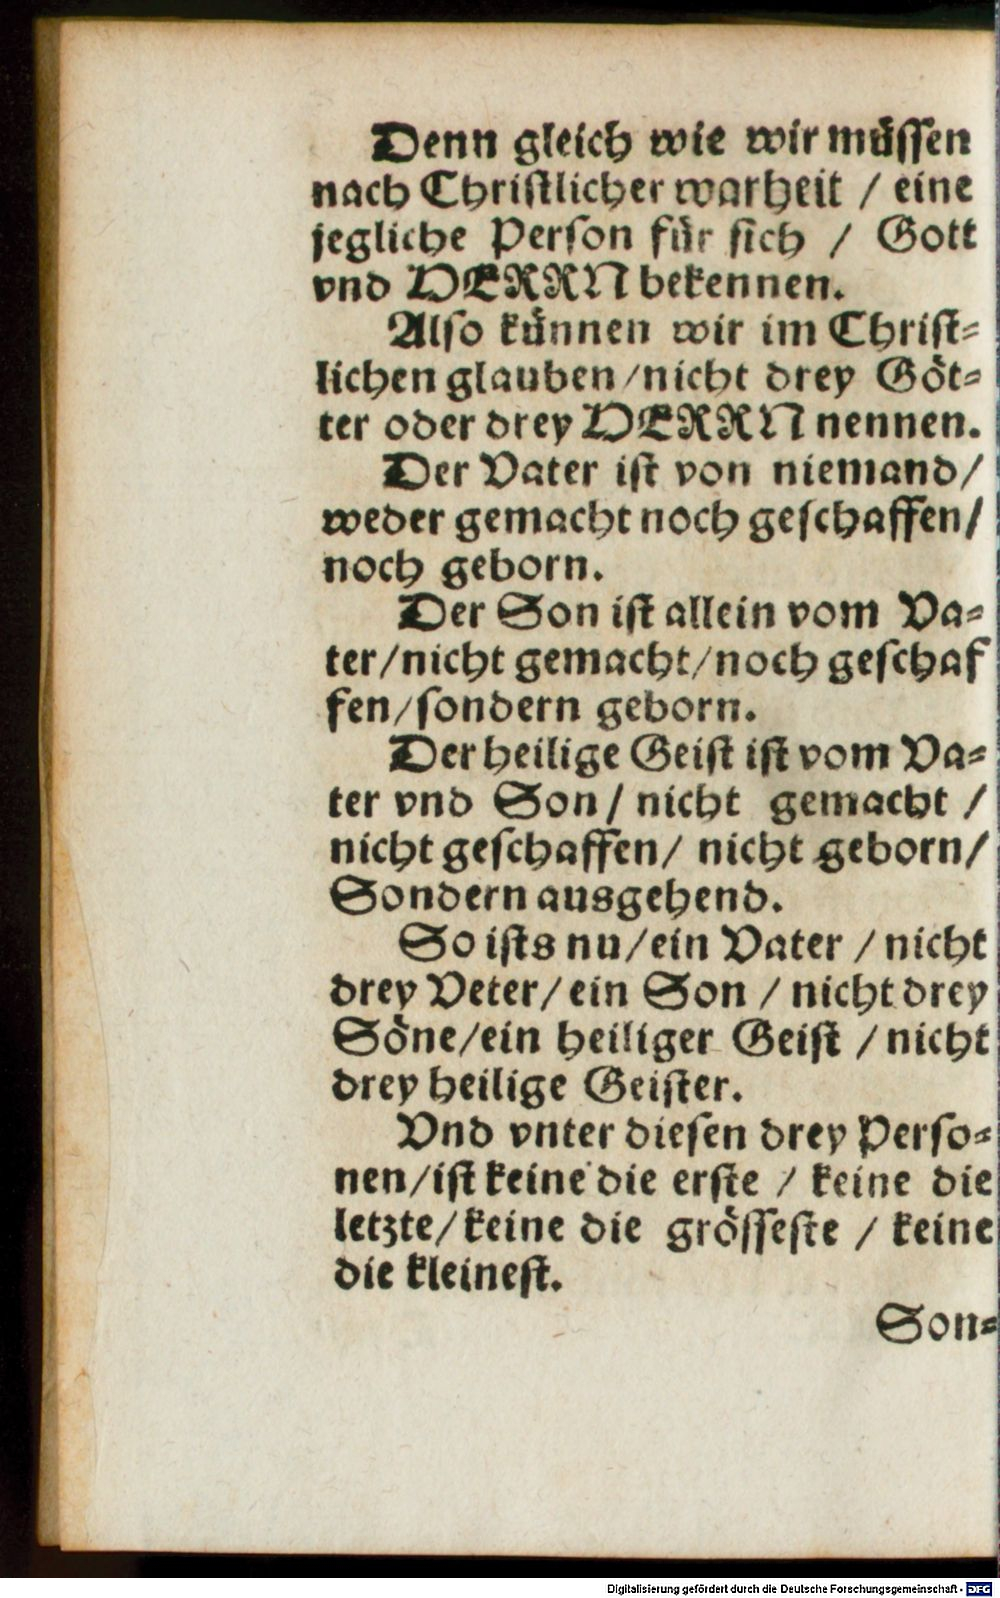 Denn gleich wie wir müssen
nach Christlicher warheit / eine
jegliche Person für sich / Gott
vnd HERRN bekennen.
Also künnen wir im Christ-
lichen glauben/nicht drey Göt-
ter oder drey HERRN nennen.
Der Vater ist von niemand/
weder gemacht noch geschaffen/
noch geborn.
Der Son ist allein vom Va-
ter/nicht gemacht/noch geschaf
fen/sondern geborn.
Der heilige Geist ist vom Va-
ter vnd Son/ nicht gemacht /
nicht geschaffen/ nicht geborn/
Sondern ausgehend.
So ists nu/ein Vater / nicht
drey Veter/ein Son / nicht drey
Söne/ein heiliger Geist / nicht
drey heilige Geister.
Vnd vnter diesen drey Perso-
nen/ist keine die erste / keine die
letzte/keine die grösseste / keine
die kleinest.
Son-
Digitalisierung gefördert durch die Deutsche Forschungsgemeinschaft - DFG